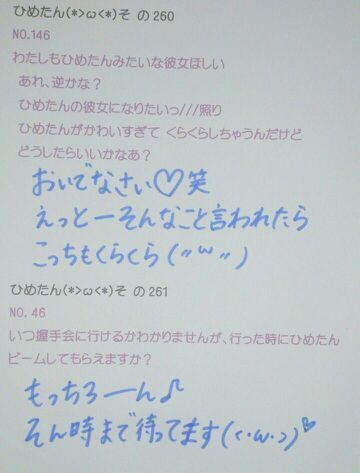 ひめたん(*>ω<*)そ の260
NO.146
わたしもひめたんみたいな彼女ほしい
あれ、逆かな？
ひめたんの彼女になりたいっ///照り
ひめたんがかわいすぎて くらくらしちゃうんだけど
どうしたらいいかなあ？
おいでなさい♡笑
えっとーそんなこと言われたら
こっちもくらくら(〃ω〃)
ひめたん(*>ω<*)そ の261
NO.46
いつ握手会に行けるかわかりませんが、行った時にひめたん
ビームしてもらえますか？
もっちろーん♪
そん時まで待ってます(<・ω・>)♡